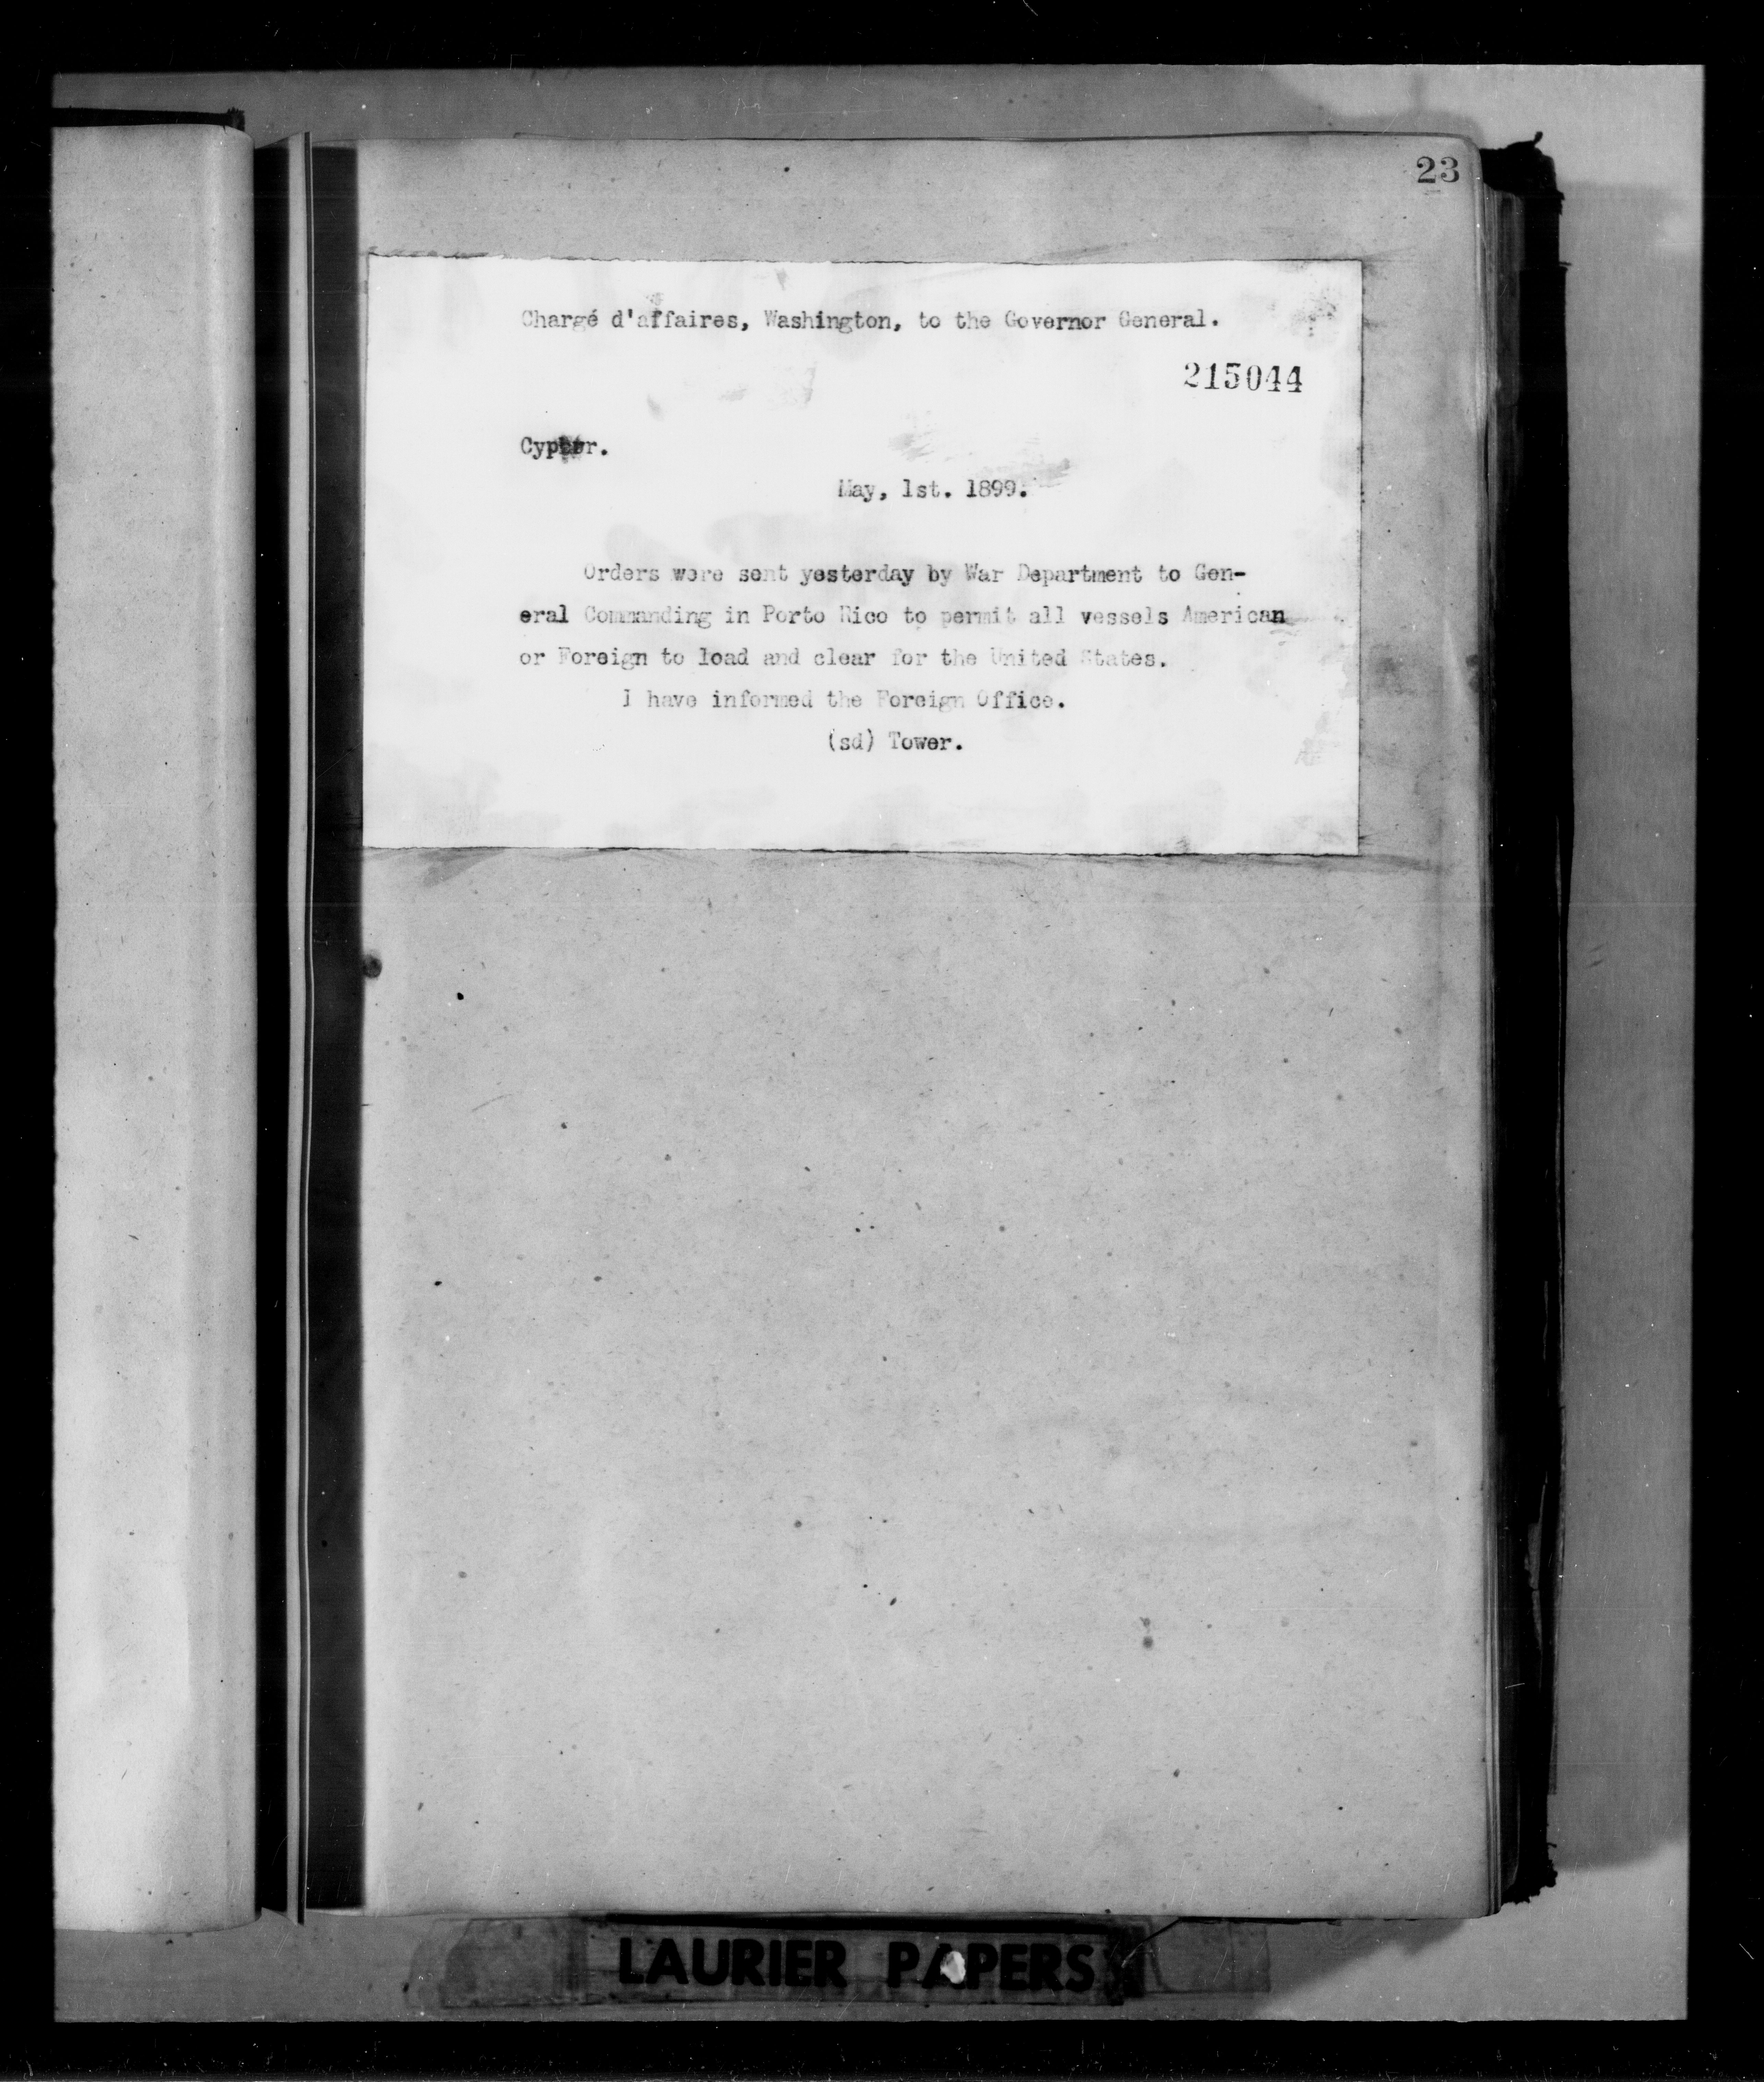 23
Chargé d'affaires, Washington, to the Governor General.
215044
Cypher.
May, 1st. 1899.
Orders were sent yesterday by War Department to Gen-
eral Commanding in Porto Rico to permit all vessels American
or Foreign to load and clear for the United States.
I have informed the Foreign Office.
(sd) Tower.
LAURIER PAPERS